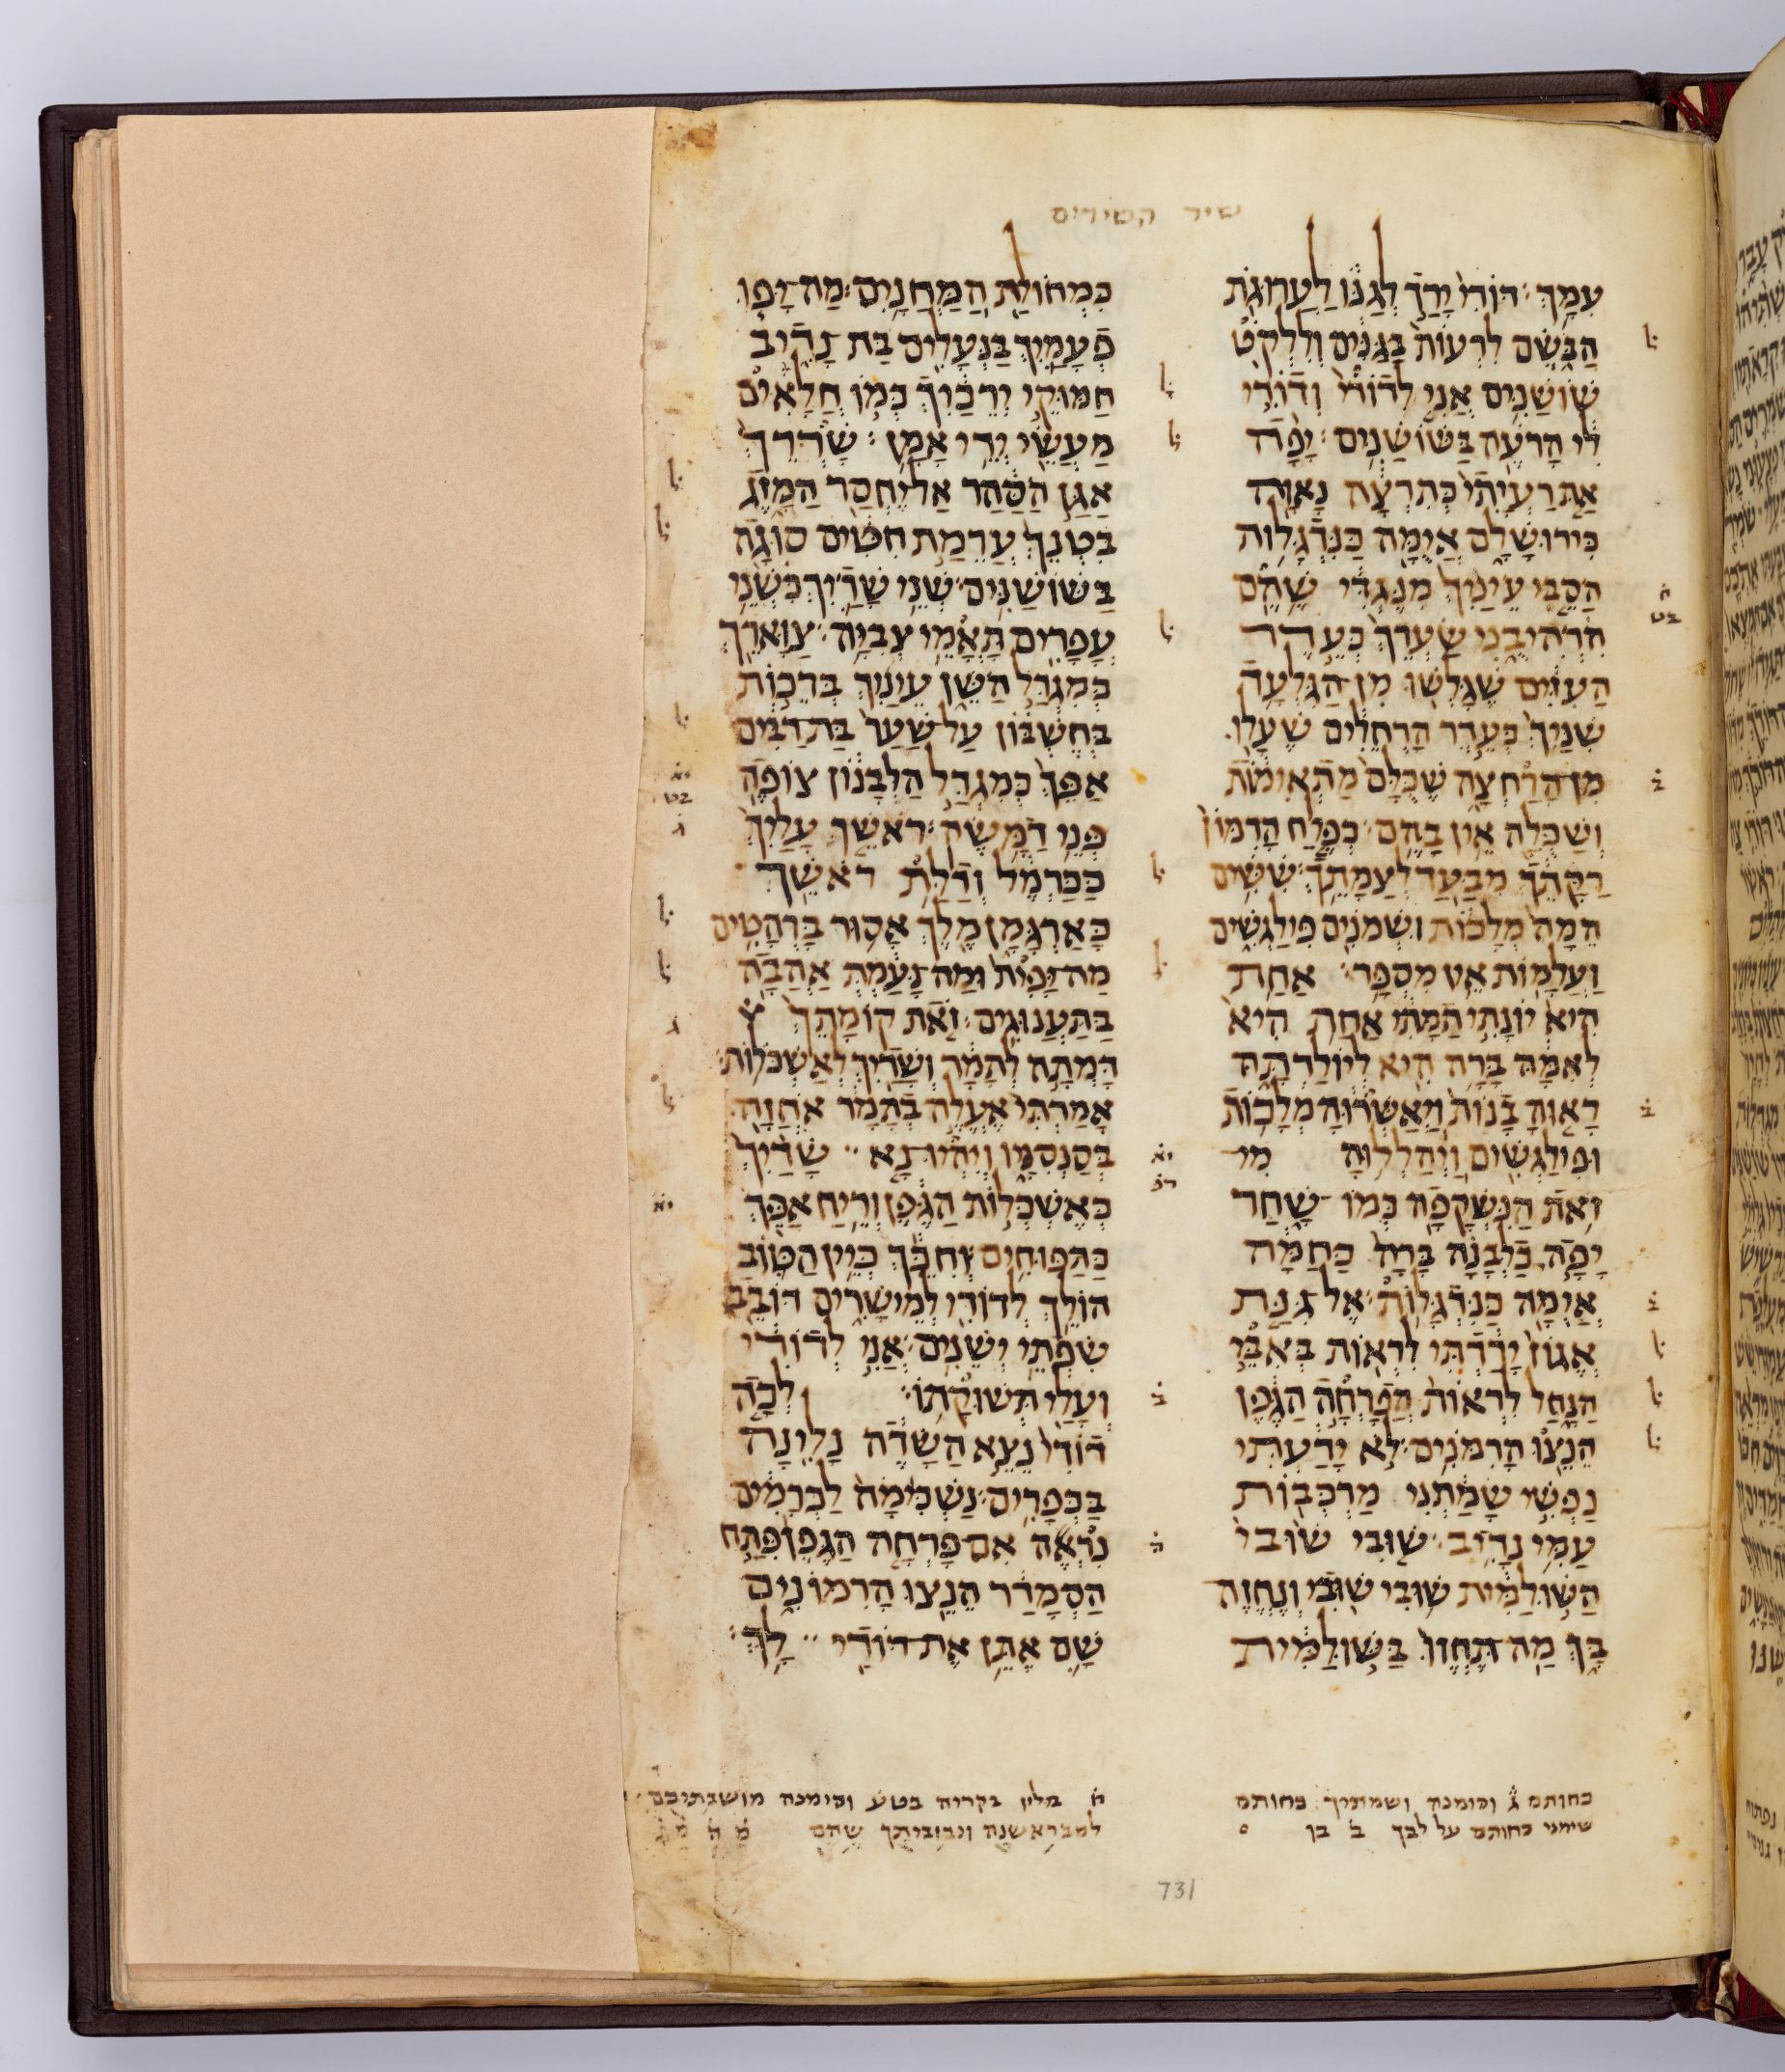 שיר השירים
עמך׃ דודי ירד לגנו לערוגת
הבשם לרעות בגנים וללקט
שושנים אני לדודי ודודי
לי הרעה בשושנים׃ יפה
את רעיתי כתרצה נאוה
כירושלם אימה כנדגלות
הסבי עיניך מנגדי שהם
הרהיבני שערך כעדר
העזים שגלשו מן הגלעד
שניך כעדר הרחלים שעלו
מן הרחצה שכלם מתאימות
ושכלה אין בהם׃ כפלח הרמון
רקתך מבעד לצמתך׃ ששים
המה מלכות ושמנים פילגשים
ועלמות אין מספר׃ אחת
היא יונתי תמתי אחת היא
לאמה ברה היא ליולדתה
ראוה בנות ויאשרוה מלכות
ופילגשים ויהללוה מי
זאת הנשקפה כמו שחר
יפה כלבנה ברה כחמה
אימה כנדגלות׃ אל גנת
אגוז ירדתי לראות באבי
הנחל לראות הפרחה הגפן
הנצו הרמנים׃ לא ידעתי
נפשי שמתני מרכבות
עמי נדיב׃ שובי שובי
השולמית שובי שובי ונחזה
בך מה תחזו בשולמית
כמחולת המחנים׃ מה יפו
פעמיך בנעלים בת נדיב
חמוקי ירכיך כמו חלאים
מעשי ידי אמן׃ שררך
אגן הסהר אל יחסר המזג
בטנך ערמת חטים סוגה
בשושנים׃ שני שדיך כשני
עפרים תאמי צביה׃ צוארך
כמגדל השן עיניך ברכות
בחשבון על שער בת רבים
אפך כמגדל הלבנון צופה
פני דמשק׃ ראשך עליך
ככרמל ודלת ראשך
כארגמן מלך אסור ברהטים
מה יפית ומה נעמת אהבה
בתענוגים׃ זאת קומתך
דמתה לתמר ושדיך לאשכלות׃
אמרתי אעלה בתמר אחזה
בסנסניו ויהיו נא שדיך
כאשכלות הגפן וריח אפך
כתפוחים׃ וחכך כיין הטוב
הולך לדודי למישרים דובב
שפתי ישנים׃ אני לדודי
ועלי תשוקתו׃ לכה
דודי נצא השדה נלינה
בכפרים׃ נשכימה לכרמים
נראה אם פרחה הגפן פתח
הסמדר הנצו הרמונים
שם אתן את דודי לך׃
כחותם ג וסימנה ושמתיך כחותם
שימני כחותם על לבך
731